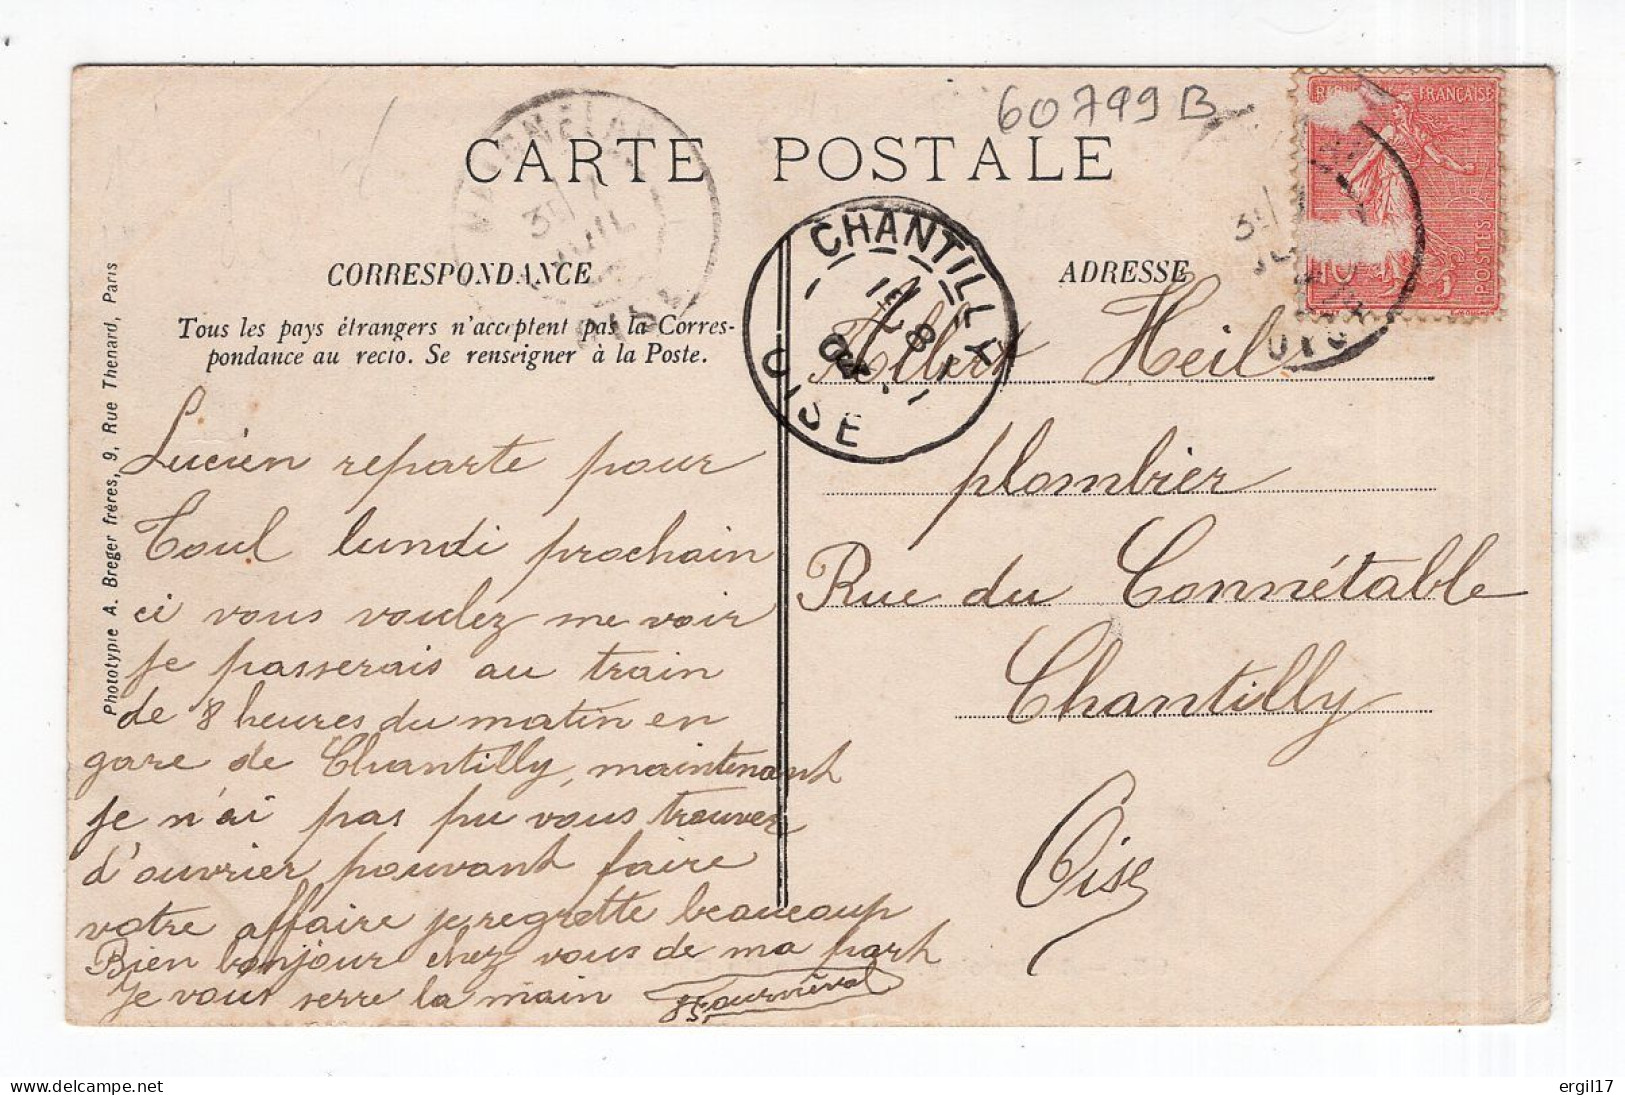 60799B
CARTE POSTALE
CHANTILLY
OISE
REPUBLIQUE FRANÇAISE
POSTES
10
CORRESPONDANCE
Tous les pays étrangers n'acceptent pas la Corres-
pondance au recto. Se renseigner à la Poste.
ADRESSE
Phototypie A. Breger frères, 9, Rue Thenard, Paris
Lucien reparte pour
Toul lundi prochain
ci vous voulez me voir
je passerais au train
de 8 heures du matin en
gare de Chantilly, maintenant
je n'ai pas pu vous trouver
d'ouvrier pouvant faire
votre affaire je regrette beaucoup
Bien bonjour chez vous de ma part
Je vous serre la main
Albert Heil
plombier
Rue du Connétable
Chantilly
Oise
ergil17